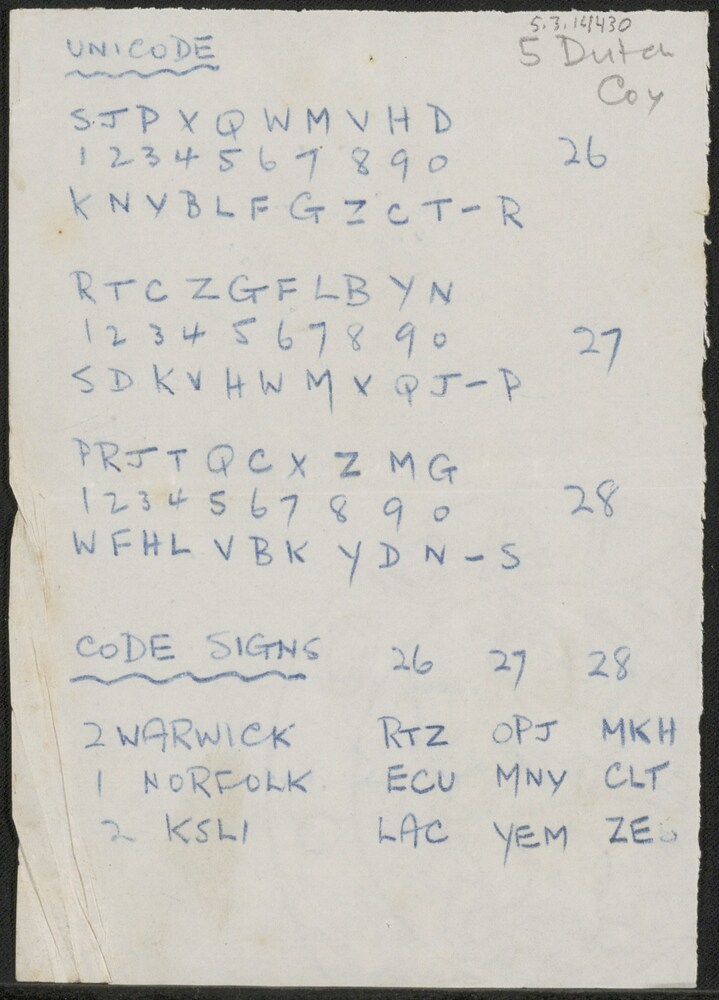 5.3.16/430
UNICODE
5 Dutch
Coy
S J P X Q W M V H D
1 2 3 4 5 6 7 8 9 0 26
K N Y B L F G Z C T - R
R T C Z G F L B Y N
1 2 3 4 5 6 7 8 9 0 27
S D K V H W M X Q J - P
P R J T Q C X Z M G
1 2 3 4 5 6 7 8 9 0 28
W F H L V B K Y D N - S
CODE SIGNS 26 27 28
2 WARWICK RTZ OPJ MKH
1 NORFOLK ECU MNY CLT
2 KSLI LAC YEM